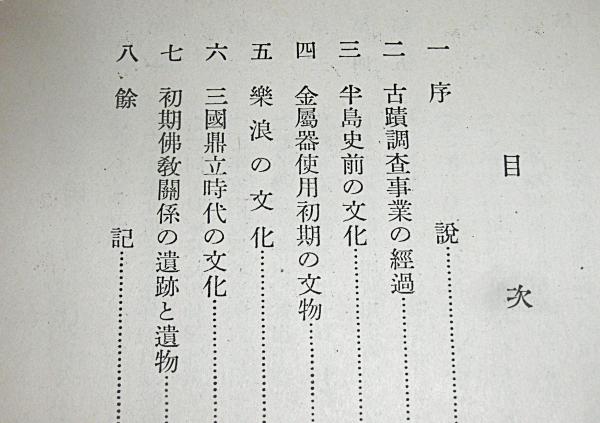 目次
一 序說
二 古蹟調査事業の經過
三 半島史前の文化
四 金屬器使用初期の文物
五 樂浪の文化
六 三國鼎立時代の文化
七 初期佛敎關係の遺跡と遺物
八 餘記